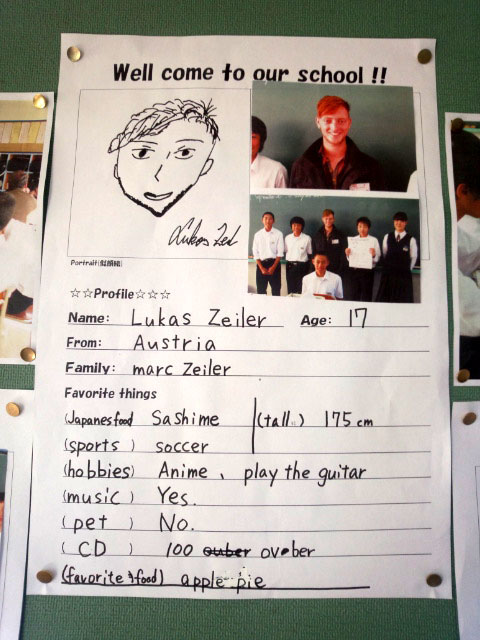 Well come to our school !!
Lukas Zei
Portrait(似顔絵)
☆☆Profile☆☆☆
Name: Lukas Zeiler Age: 17
From: Austria
Family: marc Zeiler
Favorite things
(Japanesfood) Sashime (tall) 175 cm
(sports) soccer
(hobbies) Anime、play the guitar
(music) Yes.
(pet) No.
(CD) 100 ouber over
(favorite food) apple pie